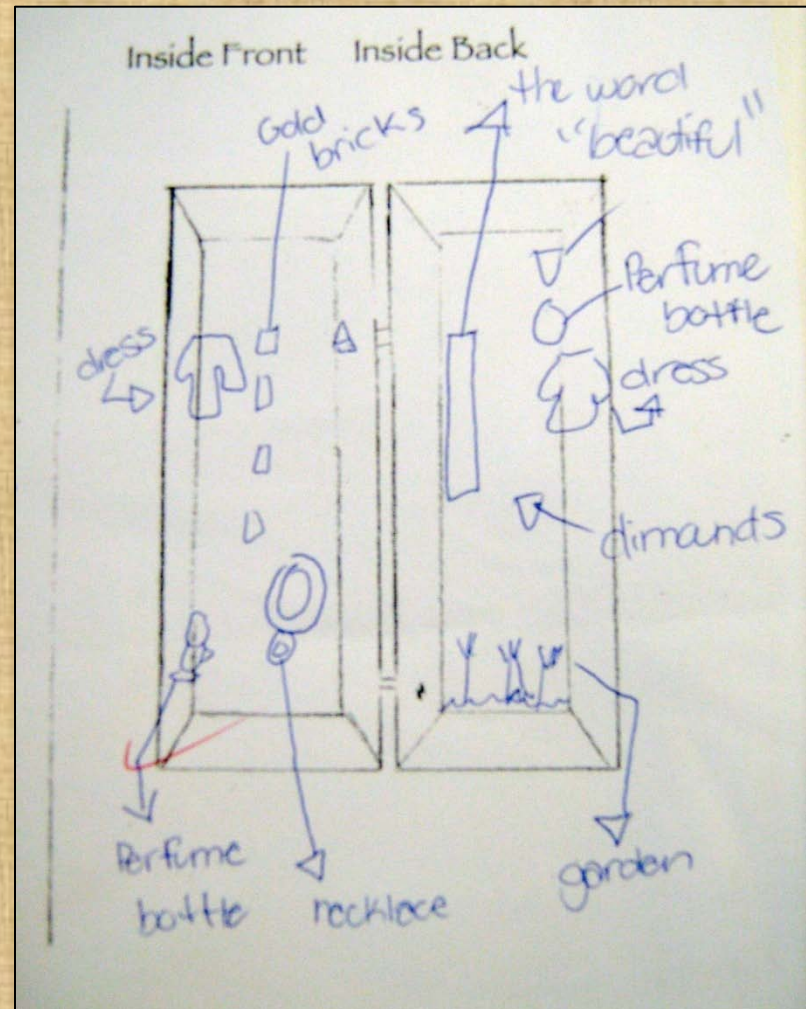 Inside Front Inside Back
Gold
bricks
the word
"beautiful"
dress
Perfume
bottle
dress
dimands
Perfume
bottle
necklace
garden